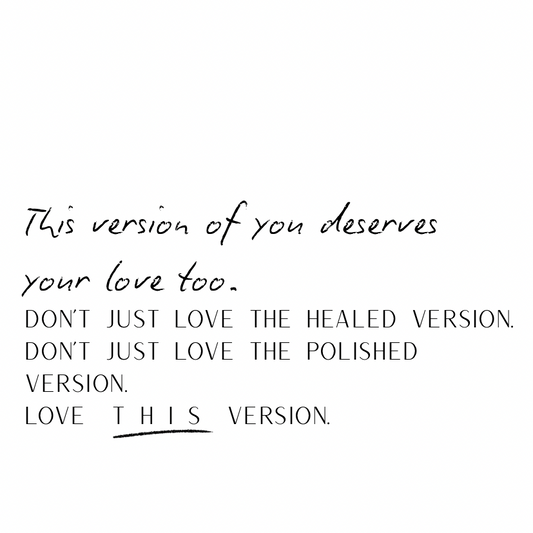 This version of you deserves
your love too.
DON'T JUST LOVE THE HEALED VERSION.
DON'T JUST LOVE THE POLISHED
VERSION.
LOVE THIS VERSION.